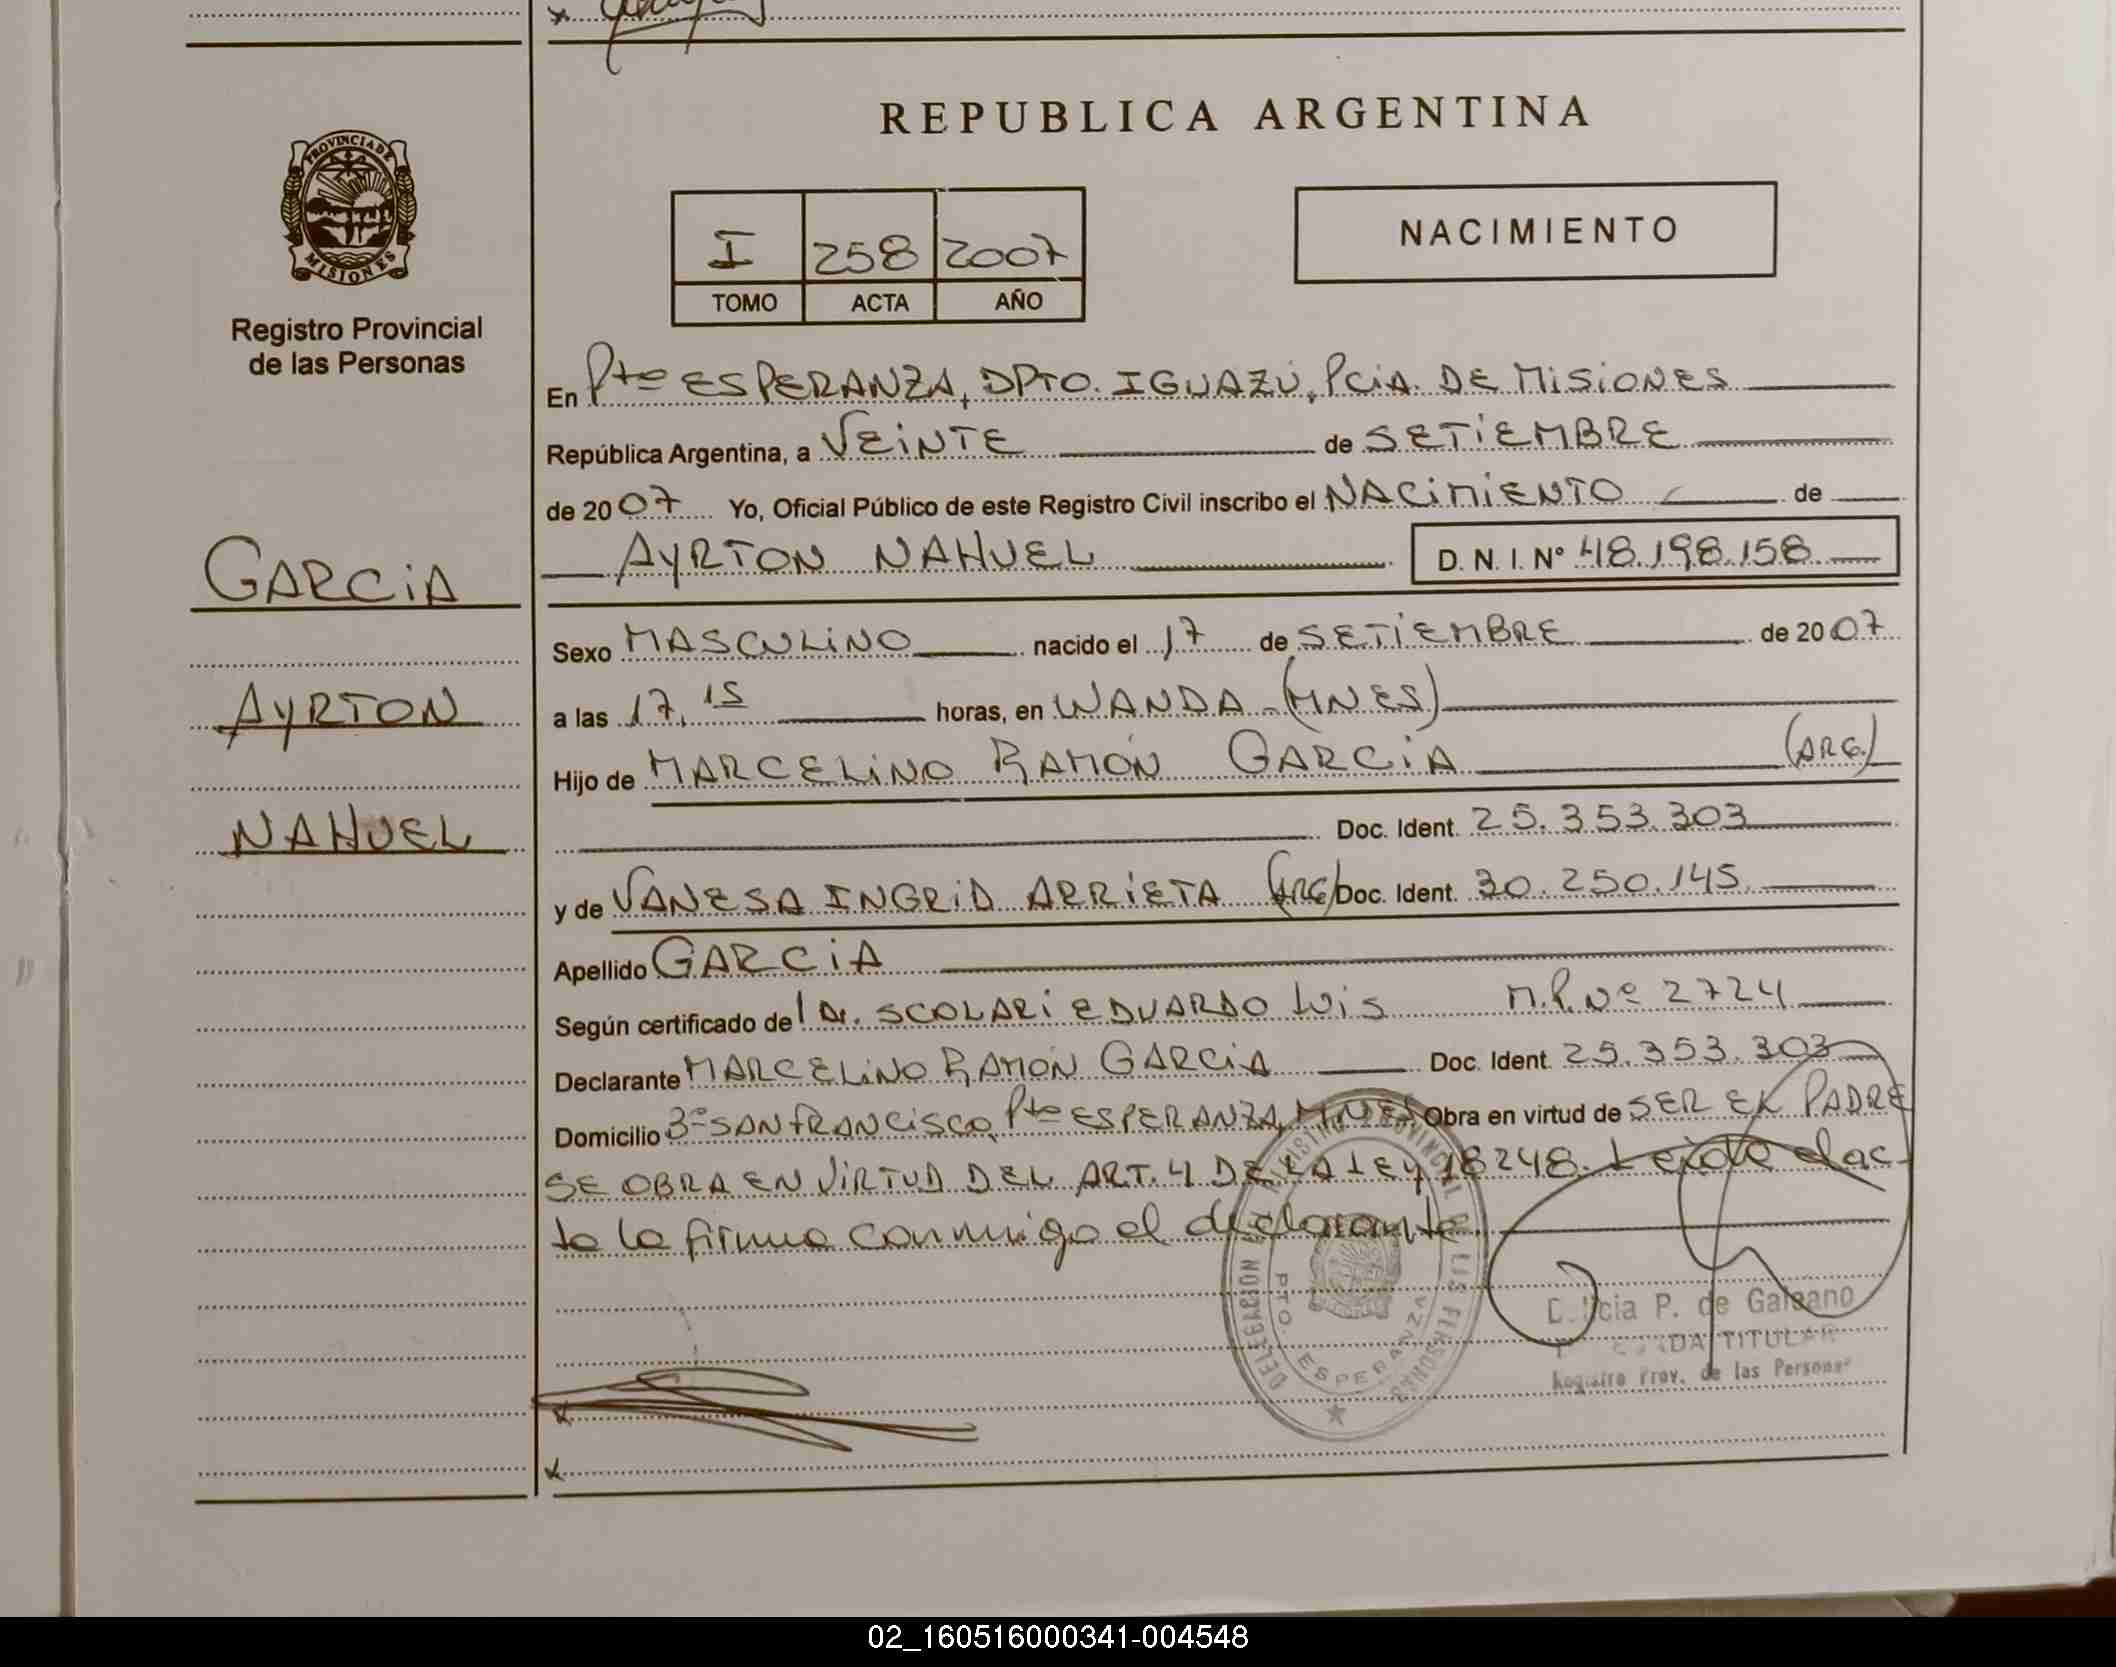 REPUBLICA ARGENTINA
PROVINCIA DE
MISIONES
Registro Provincial
de las Personas
I 258 2007
TOMO ACTA AÑO
NACIMIENTO
En Pto ESPERANZA, DPTO. IGUAZÚ, PCiA. DE MiSiONES
República Argentina, a VEiNTE de SETiEMBRE
de 2007 Yo, Oficial Público de este Registro Civil inscribo el NACiMiENTO de
AYRTON NAHUEL D.N.I. Nº 48.198.158
GARCiA
AYRTON
NAHUEL
Sexo MASCULiNO nacido el 17 de SETiEMBRE de 2007
a las 17,15 horas, en WANDA - (MNES)
Hijo de MARCELiNO RAMÓN GARCiA (ARG.)
Doc. Ident. 25.353.303
y de VANESA INGRiD ARRiETA (ARG) Doc. Ident. 30.250.145
Apellido GARCiA
Según certificado del Dr. SCOLARi EDUARDO LUiS M.P.Nº 2724
Declarante MARCELiNO RAMÓN GARCiA Doc. Ident. 25.353.303
Domicilio Bº SAN FRANCiSCO, Pto ESPERANZA, MNES Obra en virtud de SER EL PADRE
SE OBRA EN ViRTUD DEL ART. 4 DE LA LEY 18248. Leida el ac-
ta la firma conmigo el declarante.
DELEGACION REGISTRO PROVINCIAL DE LAS PERSONAS
PTO. ESPERANZA
P. de Galeano
TITULAR
Registro Prov. de las Personas
02_160516000341-004548